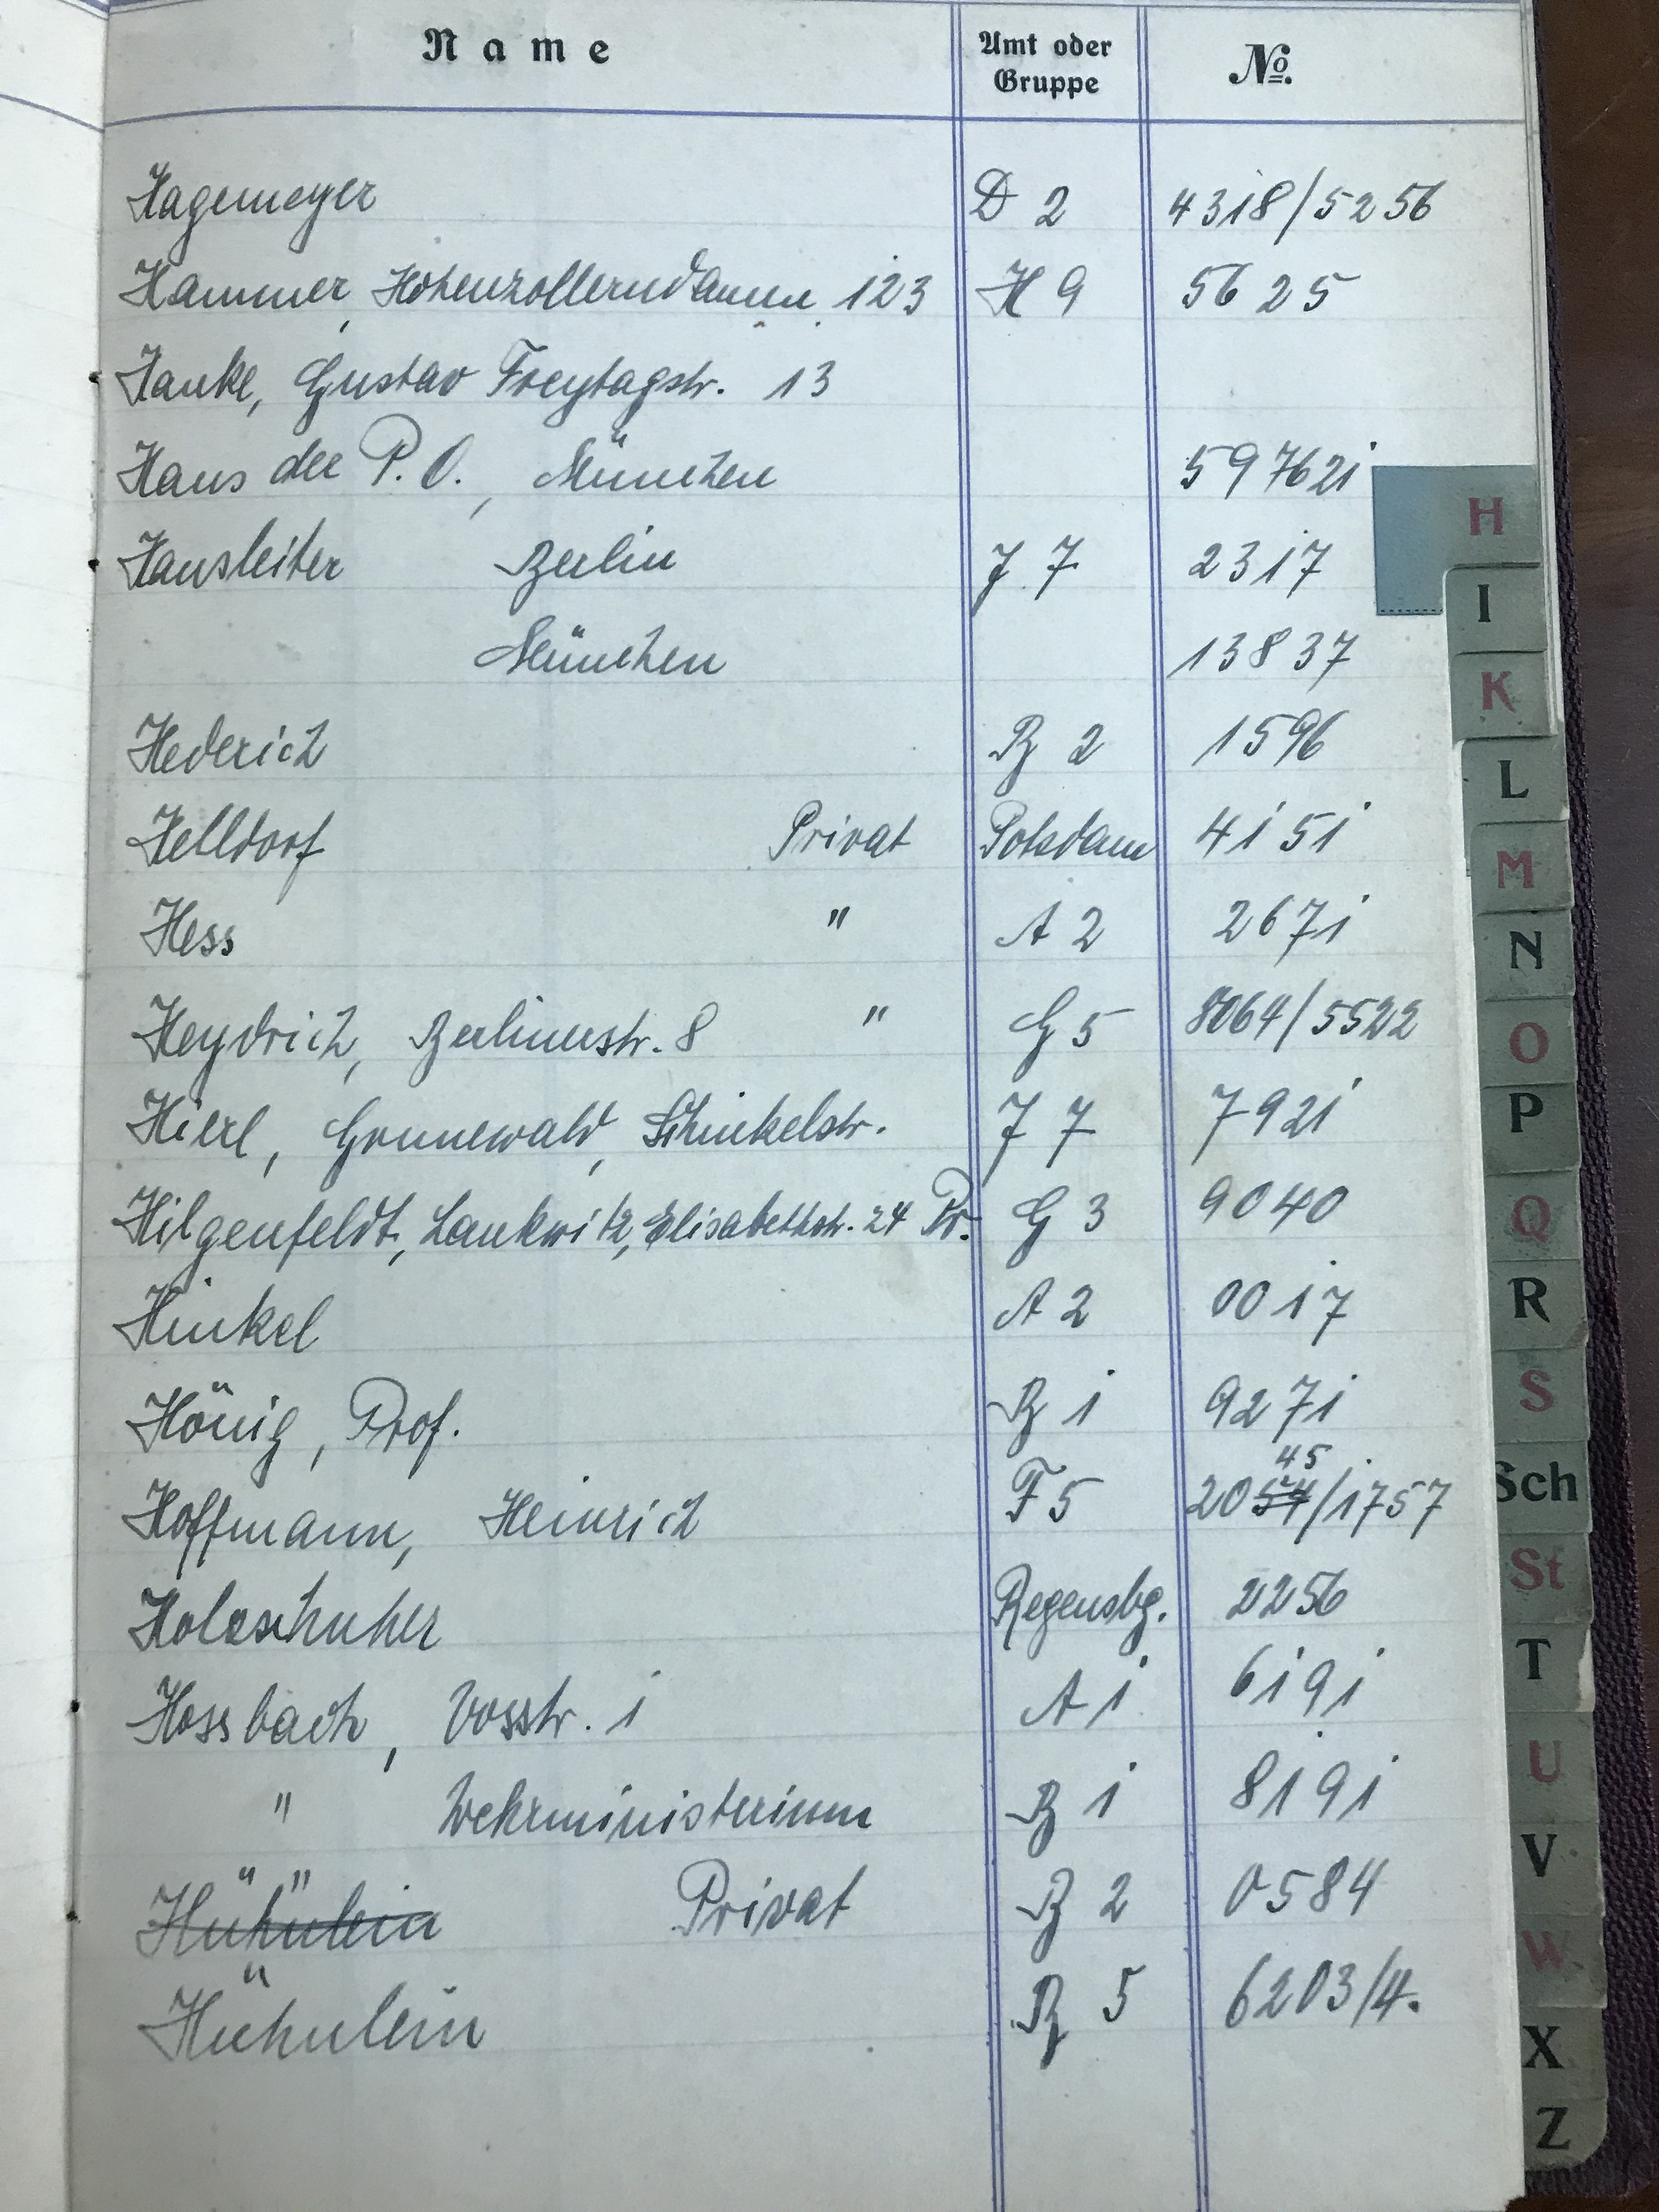 Name Amt oder Gruppe No.
Hagemeyer D 2 4318/5256
Hammer, Hohenzollerndamm 123 H 9 5625
Hanke, Gustav Freytagstr. 13
Haus der P.O., München 597621
Hausleiter Berlin J 7 2317
München 13837
Hederich B 2 1596
Helldorf Privat Potsdam 4151
Hess " A 2 2671
Heydrich, Berlinerstr. 8 " G 5 8064/5522
Hierl, Grunewald, Schinkelstr. J 7 7921
Hilgenfeldt, Lankwitz, Elisabethstr. 24 Pr. G 3 9040
Hinkel A 2 0017
Hönig, Prof. B 1 9271
45
Hoffmann, Heinrich F 5 2054/1757
Holzschuher Regensbg. 2256
Hossbach, Vosstr. 1 A 1 6191
" Wehrministerium B 1 8191
Hühnlein Privat B 2 0584
Hühnlein B 5 6203/4.
H
I
K
L
M
N
O
P
Q
R
S
Sch
St
T
U
V
W
X
Z